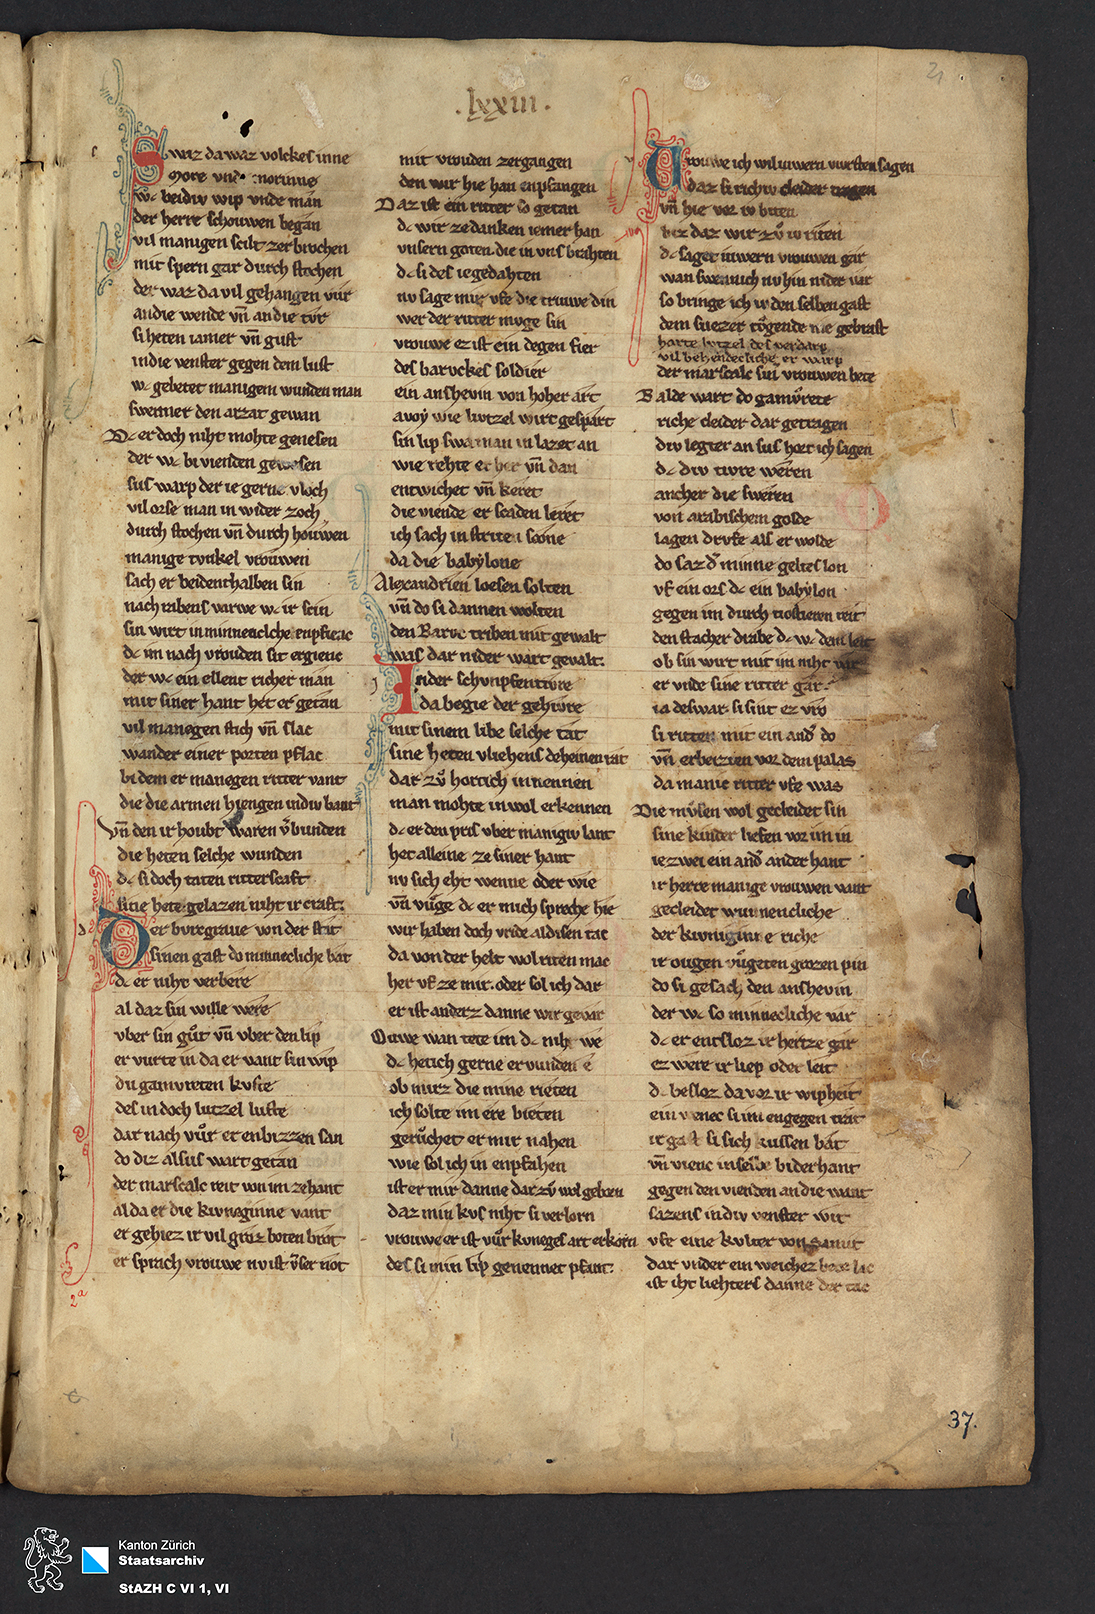 .lxxiii.
21
Swiz da waz volckes inne
More vnd morinne
w͛ beidiv wip vnde man
der herre schouwen began
vil manigen scilt zerbrochen
mit spern gar durch stochen
der waz da vil gehangen vur
an die wende vn̄ an die tvr
si heten iamer vn̄ guft
in die venster gegen dem luft
w͛ gebetet manigem wunden man
swemer den arzat gewan
D͛ er doch niht mohte genesen
der w͛ bi vienden gewesen
sus warp der ie gerne vloch
vil orse man in wider zoch
durch stochen vn̄ durch houwen
manige tvnkel vrouwen
sach er beidenthalben sin
nach rabens varwe w͛ ir scin
sin wirt in minneclche enpfienc
d͛ im nach vrouden sit ergienc
der w͛ ein ellent richer man
mit siner hant het er getan
vil manegen stich vn̄ slac
wander einer porten pflac
bi dem er manegen ritter vant
die die armen hiengen in div bant
Vn̄ den ir houbt waren v͛bunden
die heten selche wunden
d͛ si doch taten ritterscaft
si tie hete gelazen niht ir craft.
Der burcgraue von der stat
sinen gast do minnecliche bat
d͛ er niht verbere
al daz sin wille were
vber sin guͦt vn̄ vber den lip
er vurte in da er vant sin wip
du gamvreten kvste
des in doch lutzel luste
dar nach vuͦr er enbizzen san
do diz alsus wart getan
der marscalc reit von im zehant
al da er die kvneginne vant
er gehiez ir vil groz boten brot
er sprach vrouwe nv ist v͛ser not
mit vrouden zergangen
den wir hie han enpfangen
Daz ist ein ritter so getan
d͛ wir ze danken iemer han
vnsern goten die in vns brahten
d͛ si des ie gedahten
nv sage mir vfe die triuwe din
wer der ritter muge sin
vrouwe ez ist ein degen fier
des baruckes soldier
ein anshevin von hoher art
avoy wie lutzel wirt gespart
sin lip swa man in lazet an
wie rehte er her vn̄ dan
entwichet vn̄ keret
die viende er scaden leret
ich sach in striten scone
da die babylone
Alexandrien loesen solten
vn̄ do si dannen wolten
den Baruc triben mit gewalt
was dar nider wart gevalt.
In der schvnpfentivre
da begie der gehivre
mit sinem libe selche tat
sine heten vliehens deheinen rat
dar zuͦ hort ich in nennen
man mohte in wol erkennen
d͛ er den pris vber manigiv lant
het alleine ze siner hant
nv sich eht wenne oder wie
vn̄ vuͦge d͛ er mich spreche hie
wir haben doch vride al disen tac
da von der helt wol riten mac
her vf ze mir. oder sol ich dar
er ist anderz danne wir gevar
Ouwe wan tete im d͛ niht we
d͛ het ich gerne ervunden e
ob mirz die mine rieten
ich solte im ere bieten
geruͦchet er mir nahen
wie sol ich in enpfahen
ist er mir danne dar zuͦ wol geborn
daz min kvs niht si verlorn
vrouwe er ist vuͦr kvneges art erkorn
des si min lip genennet pfant.
Vrouwe ich wil iuwern vursten sagen
daz si richiv cleider tragen
vn̄ hie vor iv biten
biz daz wir zuͦ iv riten
d͛ saget iuwern vrouwen gar
wan swenn ich nv hin nider var
so bringe ich iv den selben gast
dem suezer tugende nie gebrast
harte lvtzel des verdarp
vil behendecliche er warp
der marscalc sin vrouwen bete
Balde wart do gamvrete
riche cleider dar getragen
div legter an sus hort ich sagen
d͛ div tivre weren
ancher die sweren
von arabischem golde
lagen drvfe als er wolde
do saz d͛ minne geltes lon
vf ein ors d͛ ein babylon
gegen im durch tiostieren reit
den stacher drabe d͛ w͛ dem leit
ob sin wirt mit im iht var
er vnde sine ritter gar.
ia deswar. si sint ez vro
si ritten mit ein and͛ do
vn̄ erbeizten vor dem palas
da manic ritter vfe was
Die mvsen wol gecleidet sin
sine kinder liefen vor im in
ie zwei ein and͛ an der hant
ir herre manige vrouwen vant
gecleidet wunnencliche
der kvniginne riche
ir ougen vuͦgeten grozen pin
do si gesach den anshevin
der w͛ so minnecliche var
d͛ er entsloz ir hertze gar
ez were ir liep oder leit
d͛ besloz da vor ir wipheit
ein wenec si im engegen trat
ir gast si sich kussen bat
vn̄ vienc in selbe bi der hant
gegen den vienden an die want
sazens in div venster wit
vfe eine kvlter von samit
dar vnder ein weichez bette lac
ist iht liehters danne der tac
2a
37.
Kanton Zürich
Staatsarchiv
StAZH C VI 1, VI